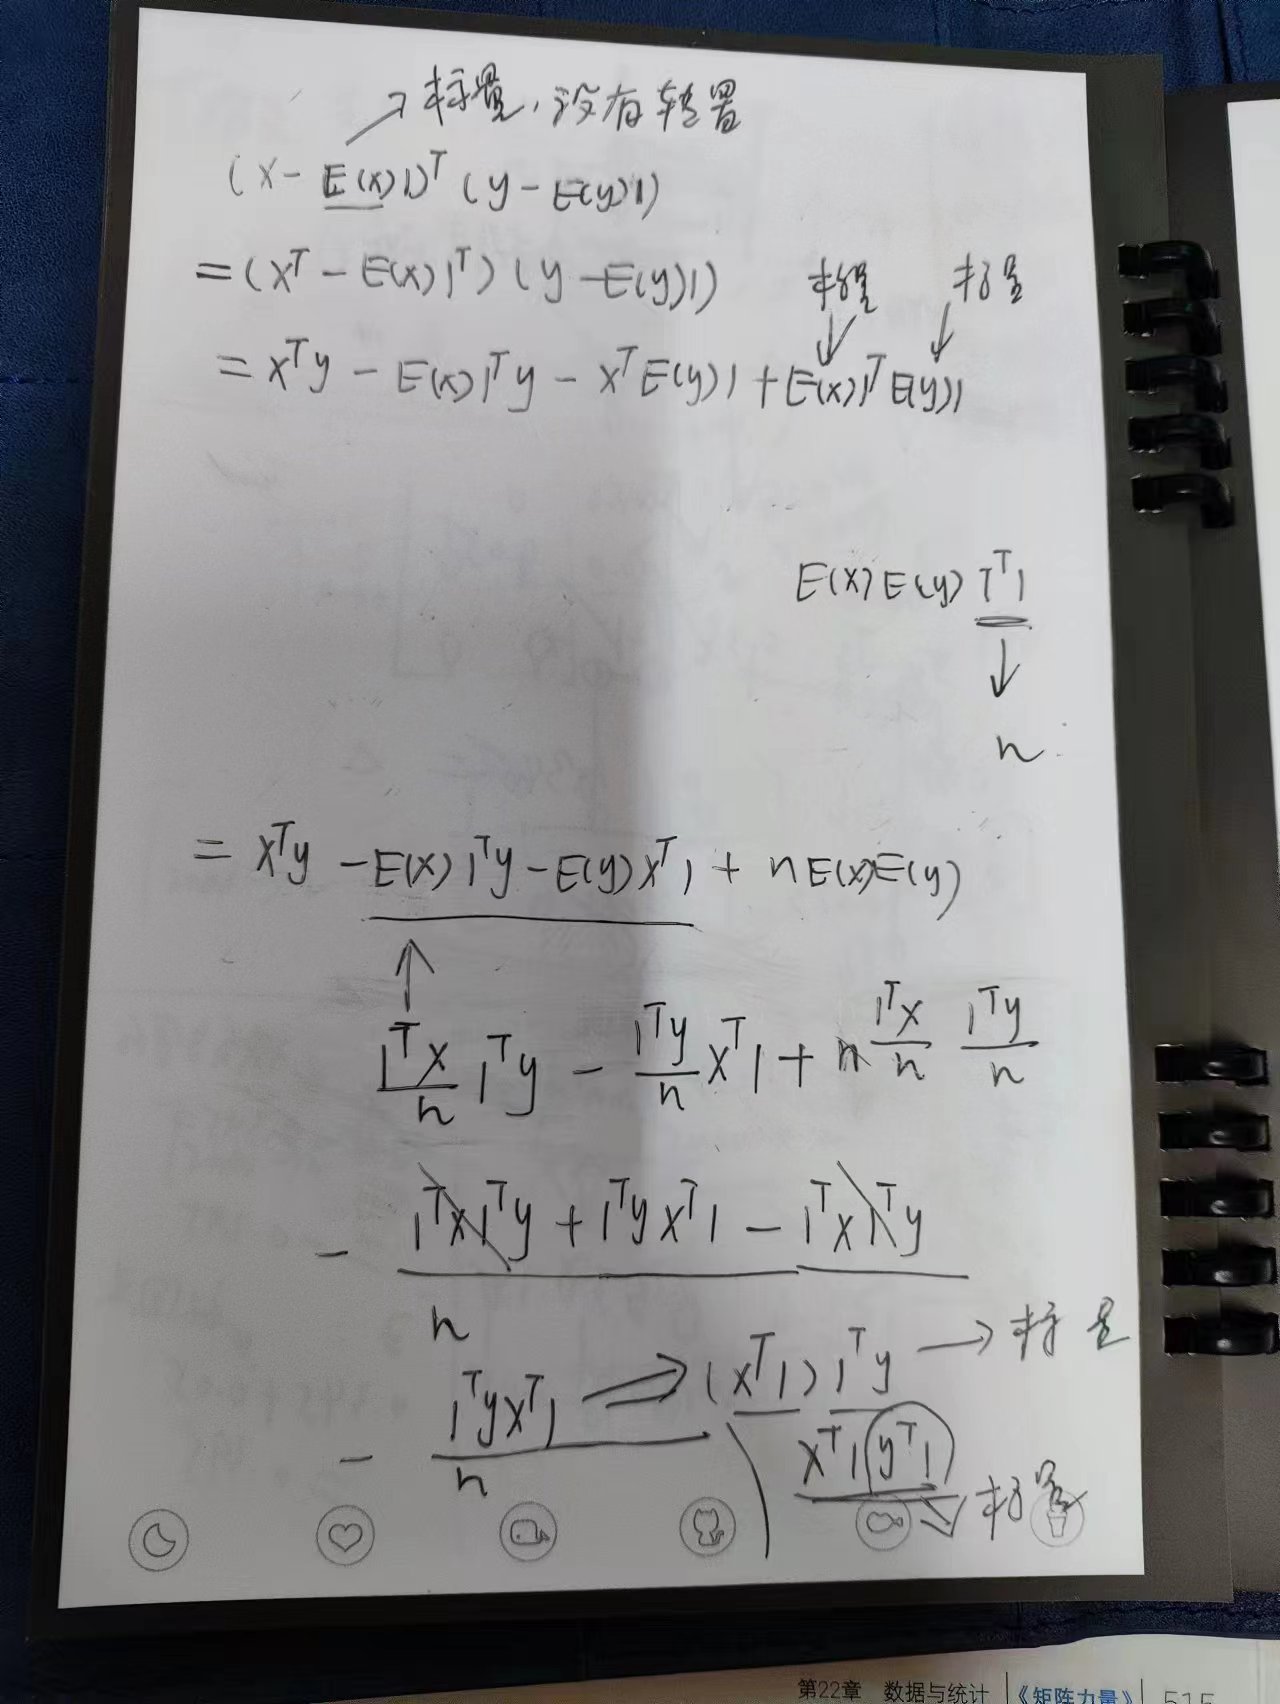 →标量，没有转置
(x - E(x)1)ᵀ (y - E(y)1)
= (xᵀ - E(x)1ᵀ) (y - E(y)1)
标量 标量
= xᵀy - E(x)1ᵀy - xᵀE(y)1 + E(x)1ᵀE(y)1
E(x)E(y) 1ᵀ1
↓
n
= xᵀy - E(x)1ᵀy - E(y)xᵀ1 + nE(x)E(y)
↑
1ᵀx/n 1ᵀy - 1ᵀy/n xᵀ1 + n 1ᵀx/n 1ᵀy/n
- (1ᵀx1ᵀy + 1ᵀyxᵀ1 - 1ᵀx1ᵀy)/n
- 1ᵀyxᵀ1/n ⇒ (xᵀ1) 1ᵀy → 标量
xᵀ1(yᵀ1)
⇒ 标量
第22章 数据与统计 |《矩阵力量》| 515